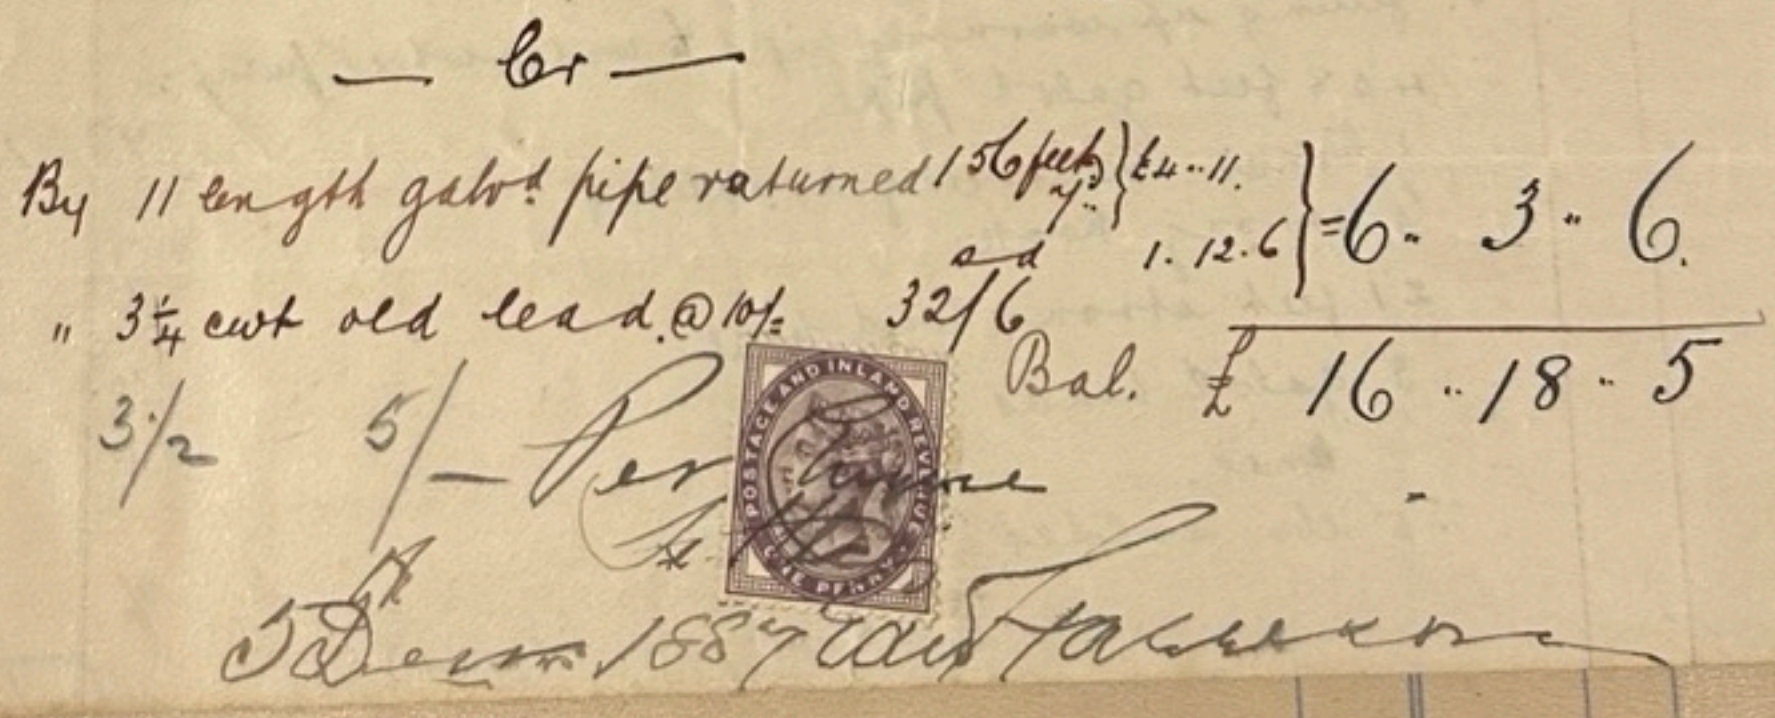 — Cr —
By 11 length galvd. pipe returned 156 feet } £4..11. } = 6.. 3.. 6.
7..
sd 1. 12. 6
" 3¼ cwt old lead. @ 10/= 32/6
Bal. £ 16.. 18.. 5
3/2 5/- Per
POSTAGE AND INLAND REVENUE
ONE PENNY
5th 1887